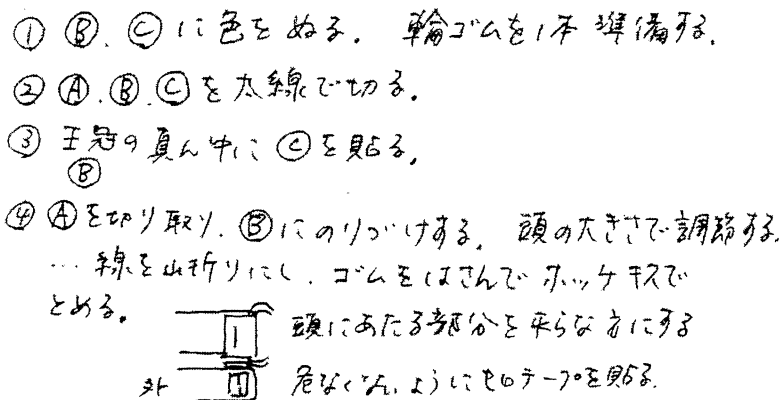 ① Ⓑ、Ⓒに色をぬる。 輪ゴムを1本準備する。
② Ⓐ、Ⓑ、Ⓒを太線で切る。
③ 王冠の真ん中にⒸを貼る。
Ⓑ
④ Ⓐを切り取り、Ⓑにのりづけする。 頭の大きさで調節する。
… 線を山折りにし、ゴムをはさんでホッチキスで
とめる。
頭にあたる部分を平らな方にする
外
危なくないようにセロテープを貼る。